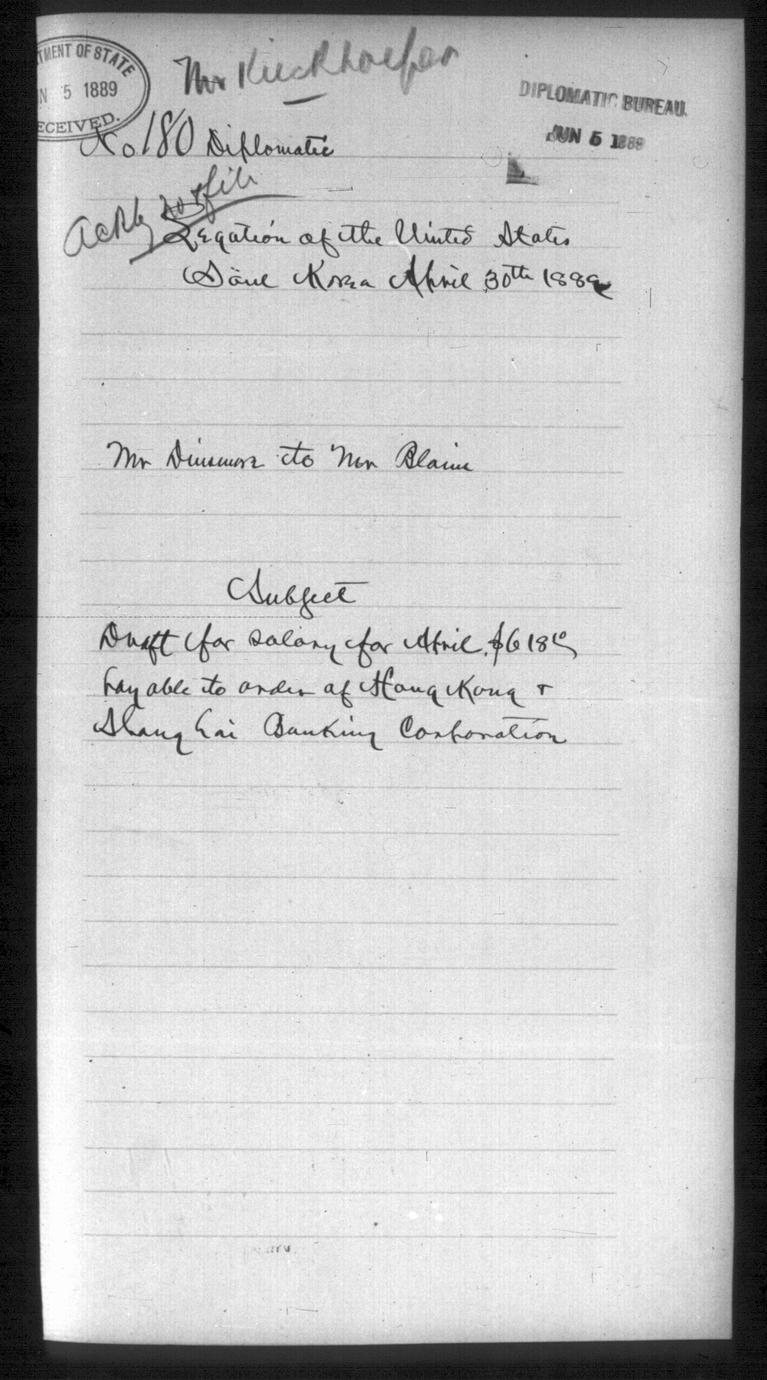 TMENT OF STATE
N 5 1889
ECEIVED.
Mr Kieckhoefer
DIPLOMATIC BUREAU.
JUN 5 1889
No 180 Diplomatic
file
Legation of the United States
Söul Korea April 30th 1889
Mr Dinsmore to Mr Blaine
Subject
Draft for salary for April, $618
payable to order of Hong Kong &
Shanghai Banking Corporation